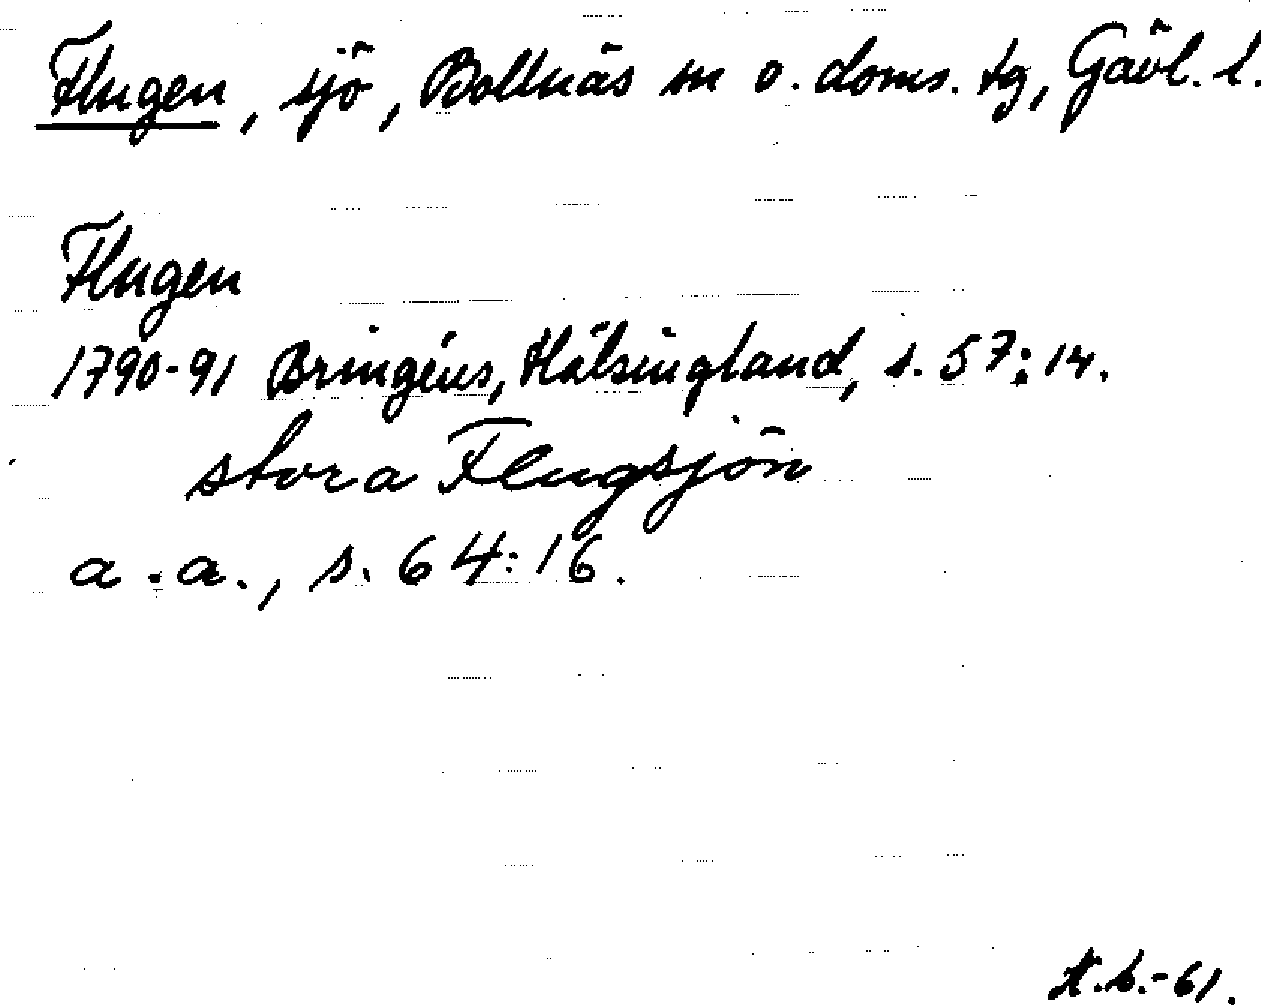 Flugen, sjö, Bollnäs sn o. doms. tg, Gävl. l.
Flugen
1790-91 Bringéus, Hälsingland, s. 57:14.
stora Flugsjön
a.a., s. 64:16.
-61.